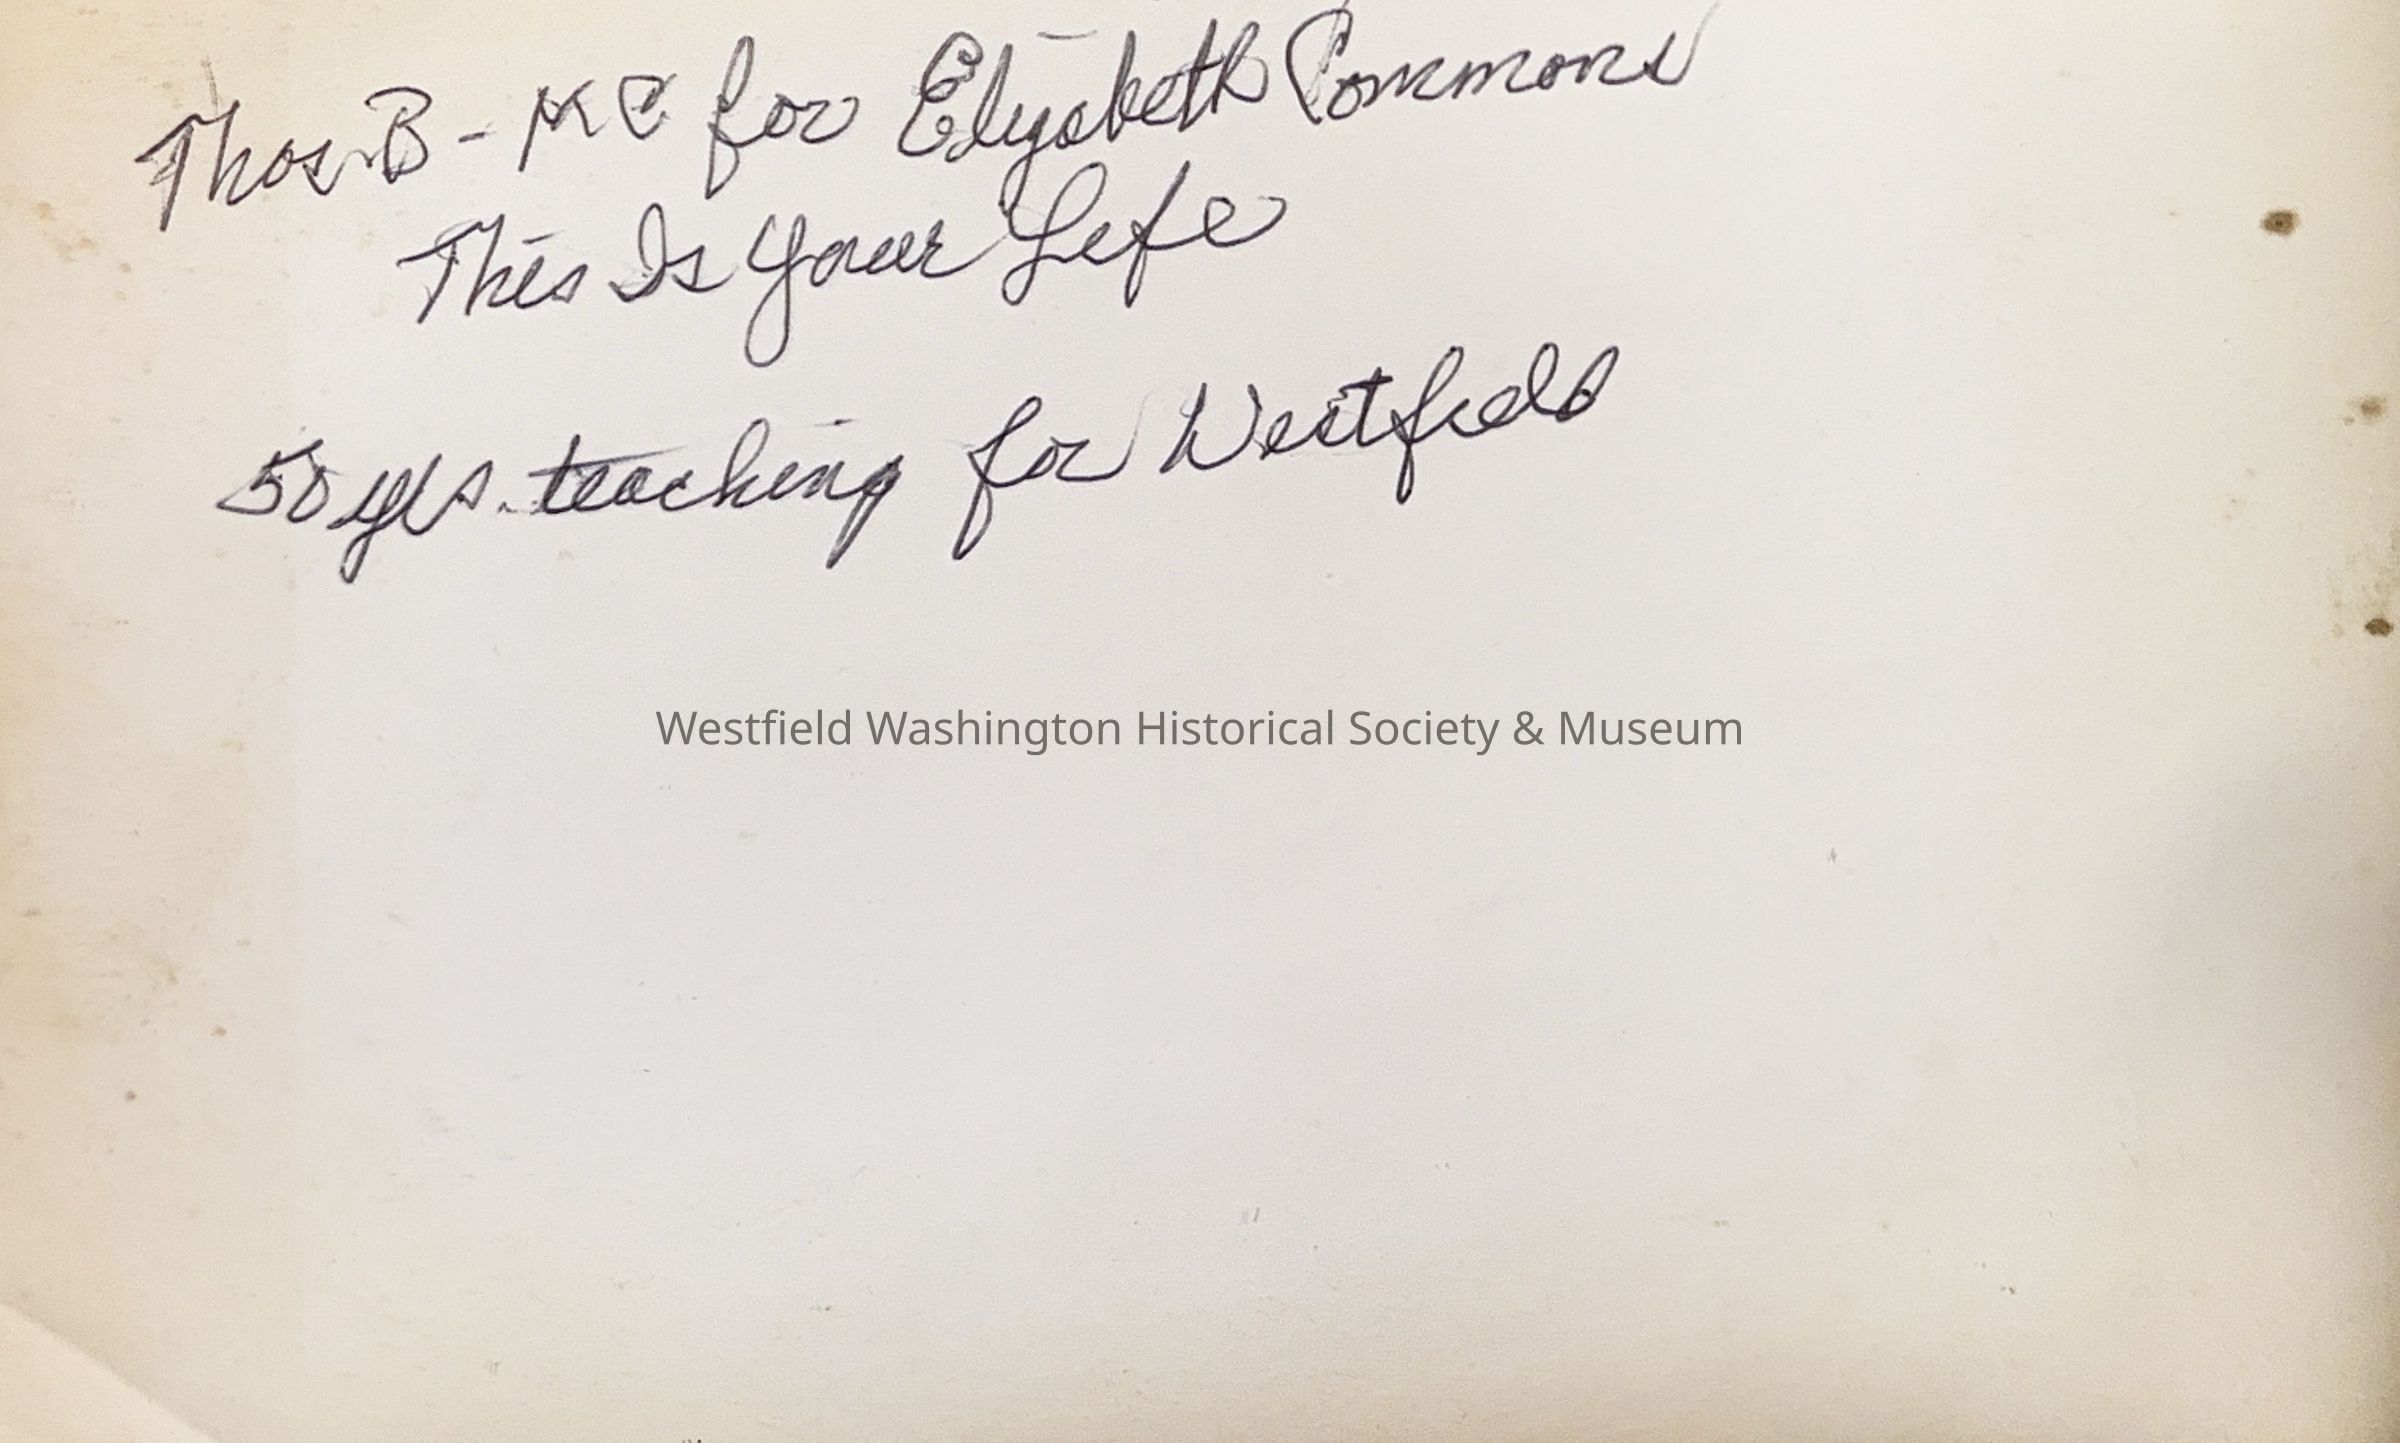 Thos B - MC for Elizabeth Commons
This Is Your Life
50 yrs. teaching for Westfield
Westfield Washington Historical Society & Museum